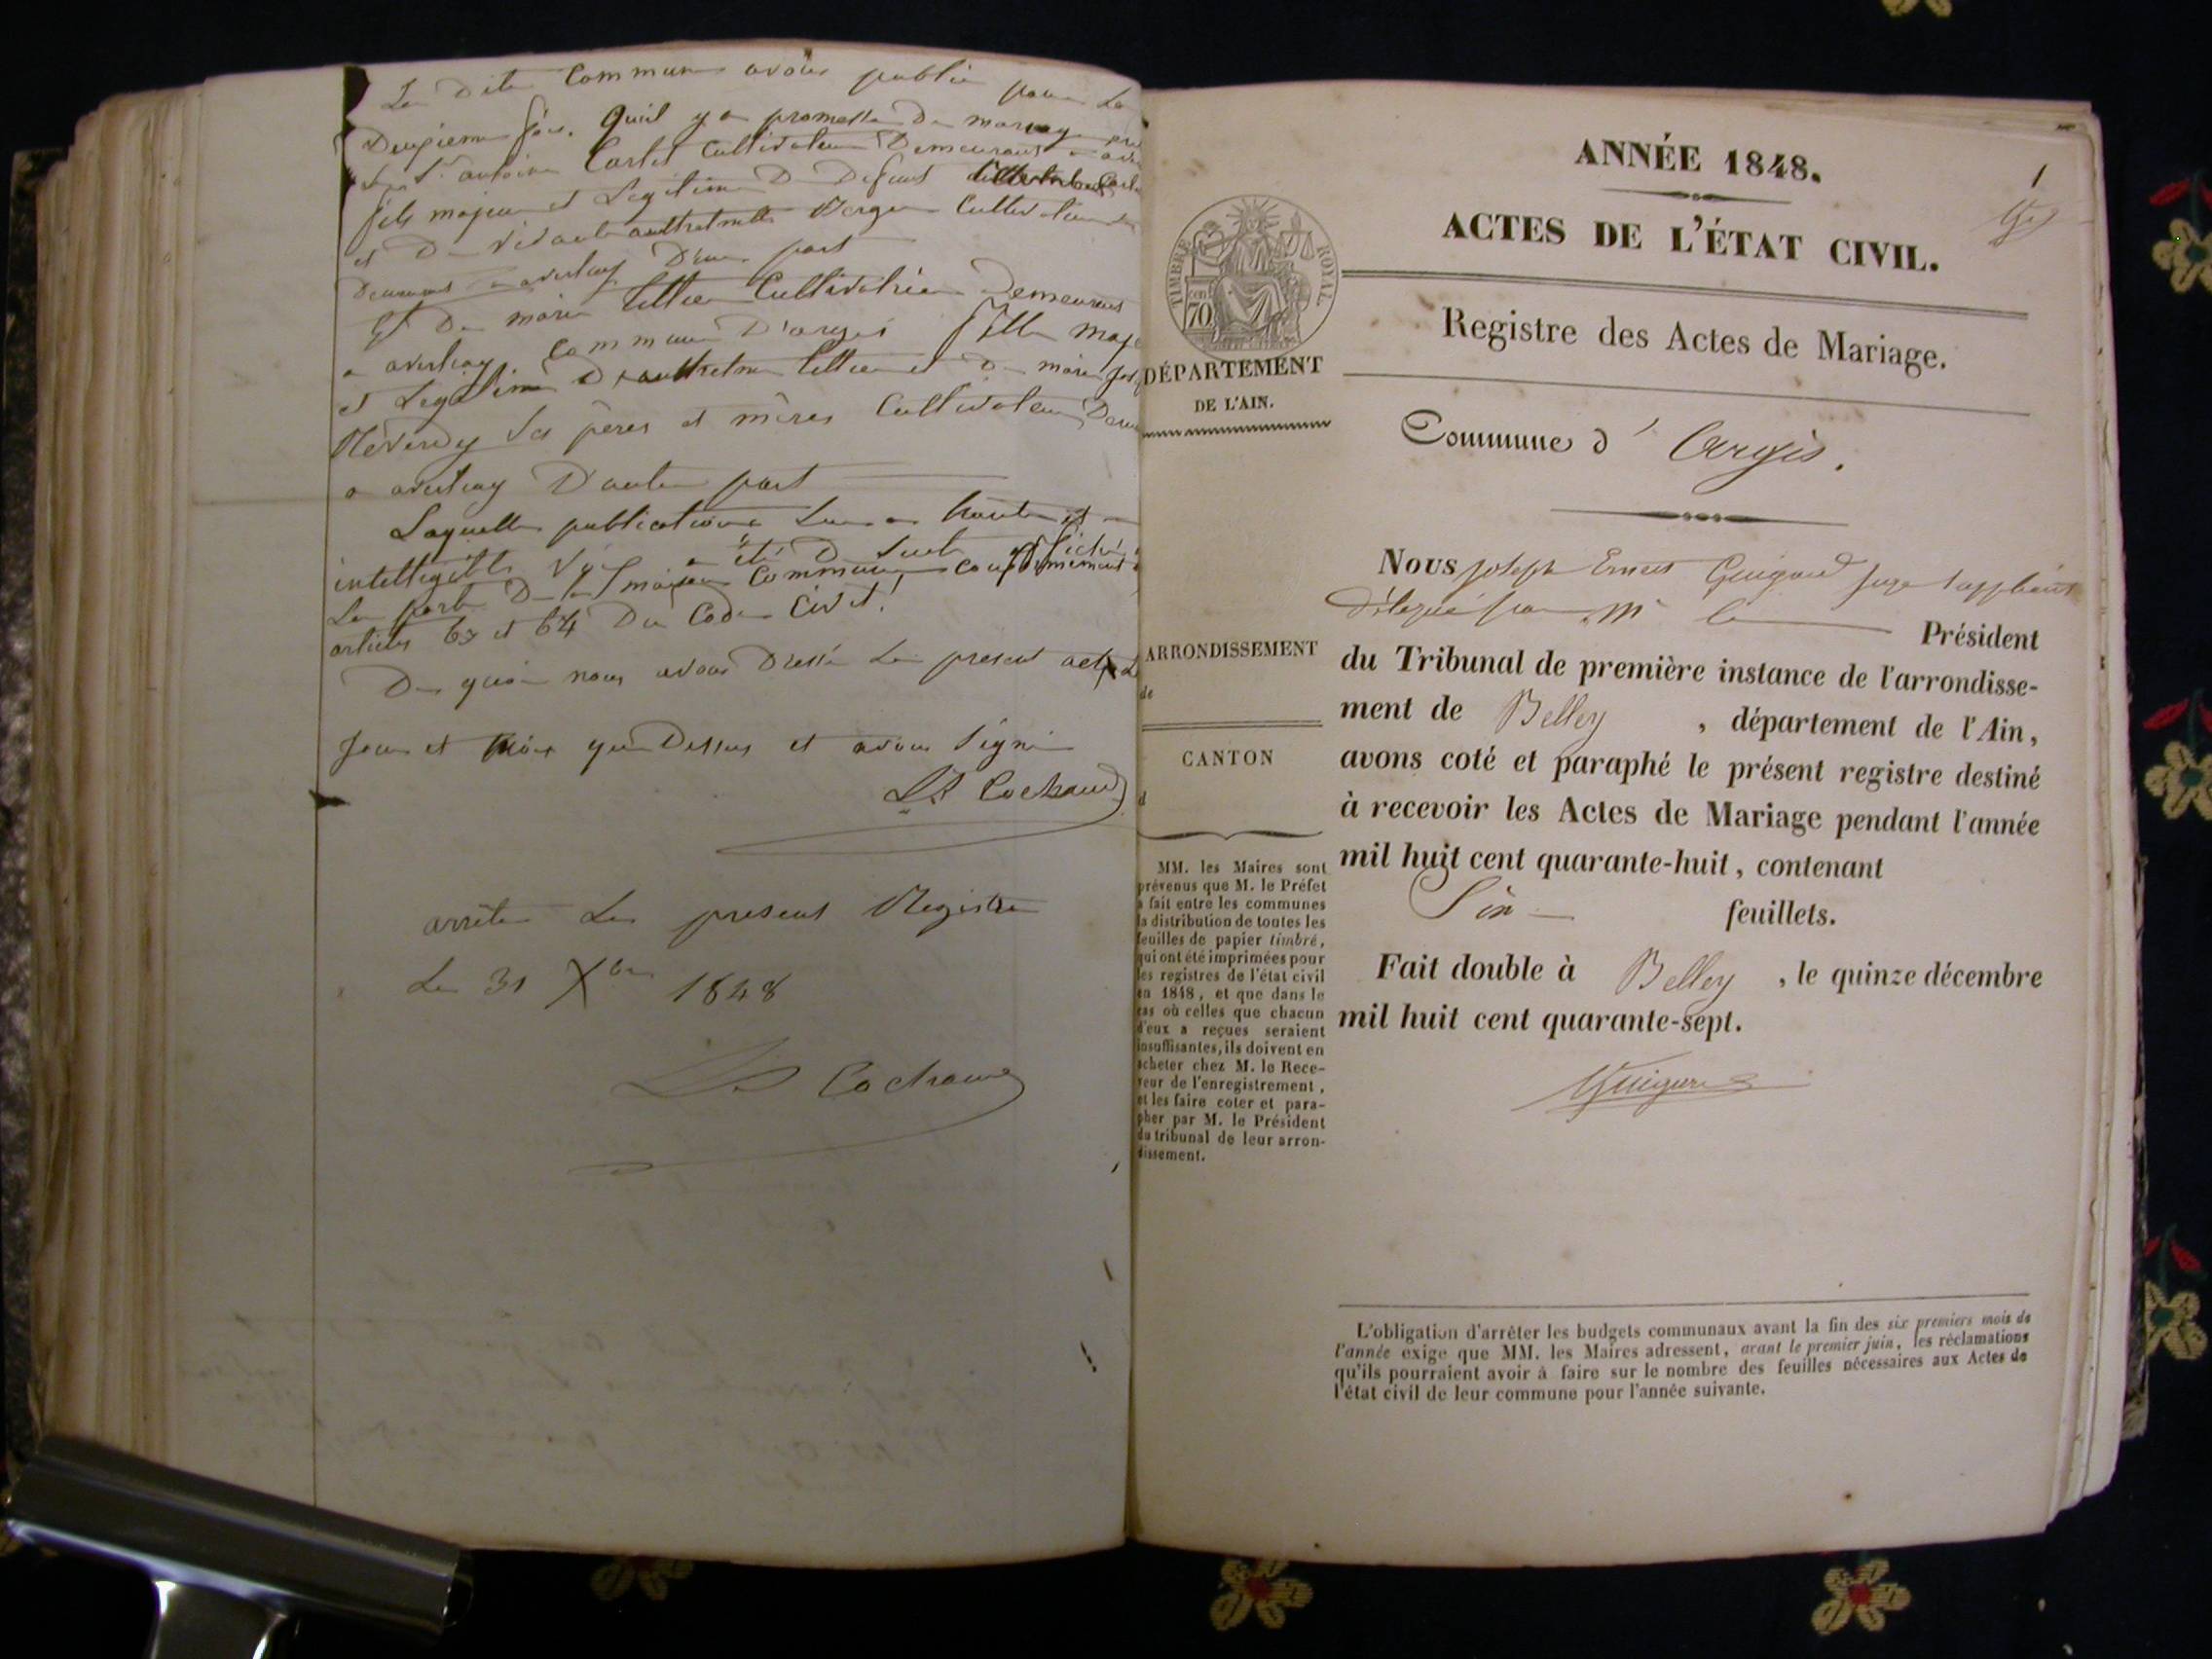 La dite Commune avons publié pour la
Deuxième fois. Quil y a promesse de mariage
antoine Carlet Cultivateur Demeurant a
fils majeur et Legitime De Defunt
et De Cultivateur
a D'une part
Et De marie Cultivatrice Demeurant
a Commune D'argis fille maj
et Legitime D et De marie
Reverdy Ses pères et mères Cultivateur
a D'autre part
Laquelle publication Lue a haute et
intelligible Voix a été De Suite affiché
La porte De la maison Commune conformement
articles 63 et 64 Du Code Civil.
De quoi nous avons Dressé Le present acte
Jour et mois que Dessus et avons Signé
Cochaud
arrêté Le present Registre
Le 31 Xbre 1848
Cochaud
ANNÉE 1848.
1
ACTES DE L'ÉTAT CIVIL.
TIMBRE ROYAL
70
DÉPARTEMENT
DE L'AIN.
Registre des Actes de Mariage.
Commune d'Argis.
ARRONDISSEMENT
de
CANTON
d
MM. les Maires sont
prévenus que M. le Préfet
a fait entre les communes
la distribution de toutes les
feuilles de papier timbré,
qui ont été imprimées pour
les registres de l'état civil
en 1848, et que dans le
cas où celles que chacun
d'eux a reçues seraient
insuffisantes, ils doivent en
acheter chez M. le Rece-
veur de l'enregistrement,
et les faire coter et para-
pher par M. le Président
du tribunal de leur arron-
dissement.
Nous Joseph Ernest Guigard juge suppléant
délégué par Mr le Président
du Tribunal de première instance de l'arrondisse-
ment de Belley, département de l'Ain,
avons coté et paraphé le présent registre destiné
à recevoir les Actes de Mariage pendant l'année
mil huit cent quarante-huit, contenant
Six feuillets.
Fait double à Belley, le quinze décembre
mil huit cent quarante-sept.
L'obligation d'arrêter les budgets communaux avant la fin des six premiers mois de
l'année exige que MM. les Maires adressent, avant le premier juin, les réclamations
qu'ils pourraient avoir à faire sur le nombre des feuilles nécessaires aux Actes de
l'état civil de leur commune pour l'année suivante.